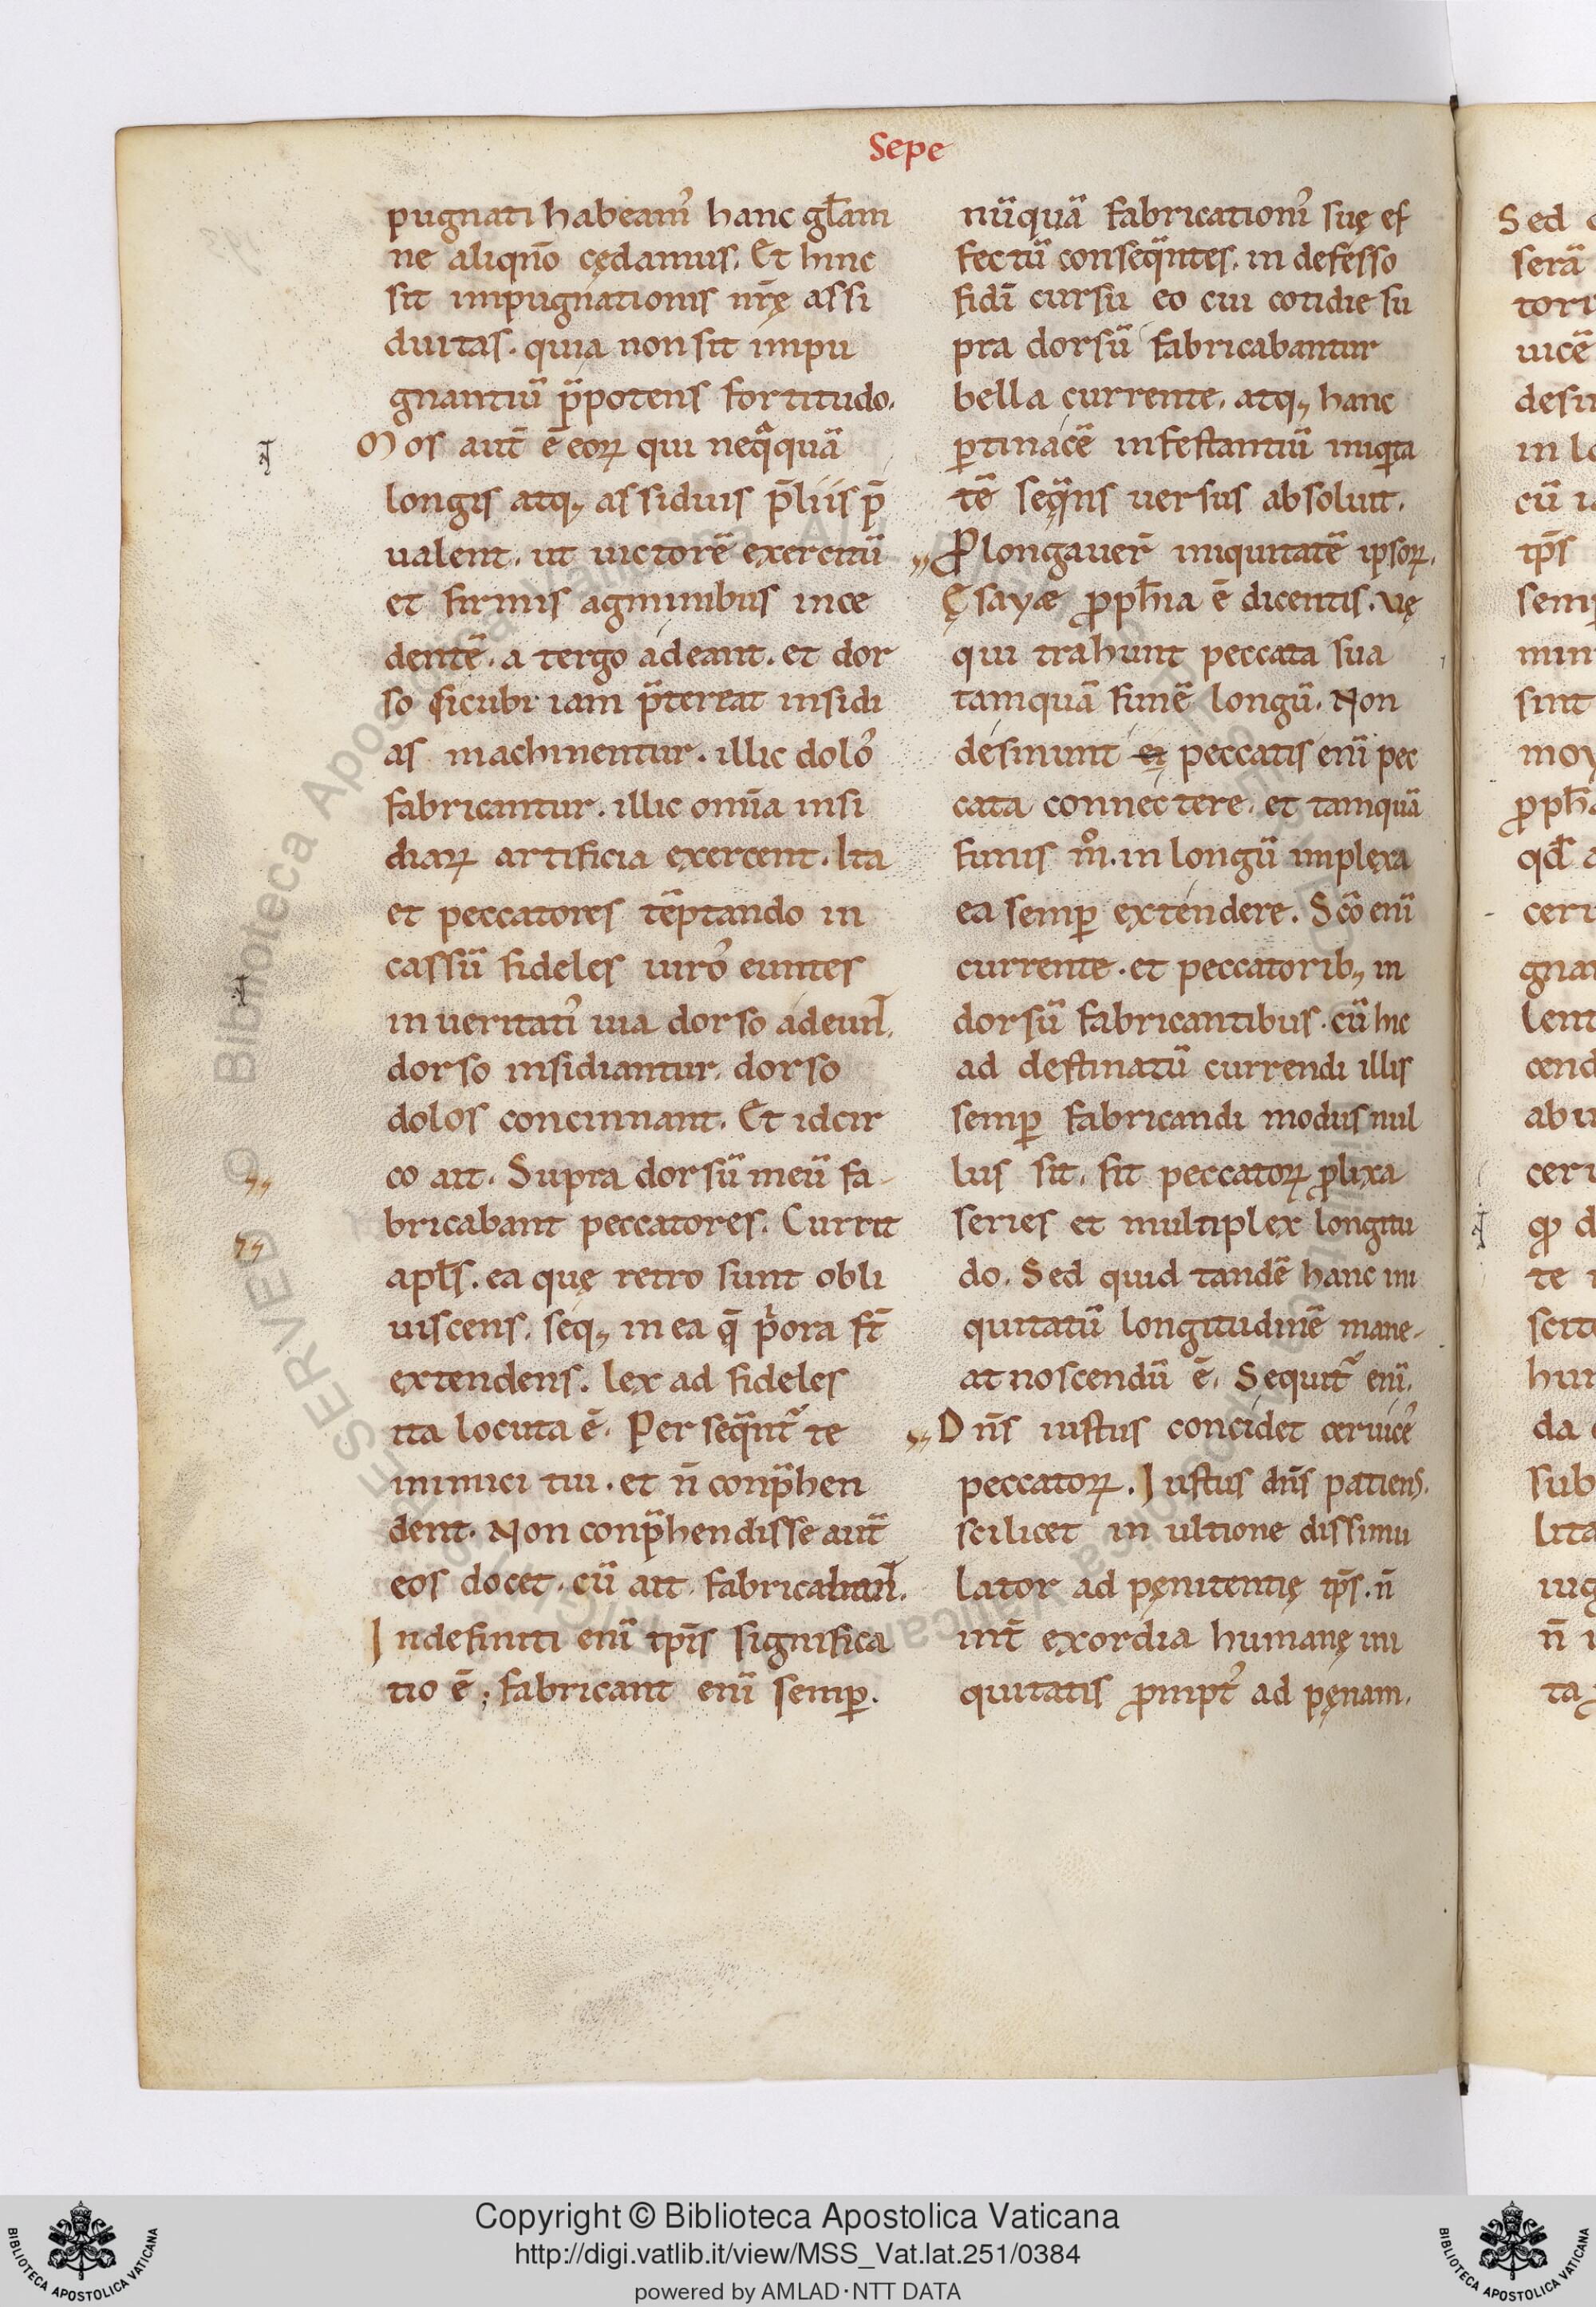 Sepe
pugnati habeam᾽ hanc gl̄am
ne aliqn̄o cędamus. Et hinc
sit impugnationis nr̄ę assi
duitas. quia non sit impu
gnantiū p̄potens fortitudo.
Mos aut̄ ē eoꝝ qui neqᵃquā
longis atq; assiduis p̄liis p̄
ualent. ut uictorē exercitū
et firmis agminibus ince
dentē. a tergo adeant. et dor
so sicubi iam p̄tereat insidi
as machinentur. illic dolo᾽
fabricantur. illic om̄ia insi
diaꝝ artificia exercent. Ita
et peccatores tēptando in
cassū fideles uiro᾽ euntes
in ueritati᾽ uia dorso adeun̄t.
dorso insidiantur. dorso
dolos concinnant. Et idcir
co ait. Supra dorsū meū fa-
bricabant peccatores. Currit
apl̄s. ea quę retro sunt obli
uiscens. seq; in ea q̄ p̍ora st̄
extendens. lex ad fideles
ita locuta ē. Perseqᵃnt᾽ te
inimici tui. et n̄ conp̄hen
dent. Non conp̄hendisse aut̄
eos docet. cū ait. fabricaban̄t.
Indefiniti enī tp̄is significa
tio ē; fabricant enī semꝑ.
nūquā fabrication᾽ suę ef
fectū conseqᵃntes. in defesso
fidī cursu eo cui cotidie su
pra dorsū fabricabantur
bella currente. atq; hanc
ꝑtinacē infestantiū iniqͥta
tē seqᵃns uersus absoluit.
,, Ꝓlongauer̄ iniquitatē ipsoꝝ.
Ęsayæ ꝓph̄ia ē dicentis. Vę
qui trahunt peccata sua
tamquā funē longū. Non
desinunt ei peccatis enī pec
cata connectere. et tamquā
funis mº. in longū implexa
ea semꝑ extendere. Sc̄o enī
currente. et peccatorib; in
dorsū fabricantibus. cū hic
ad destinatū currendi illis
semꝑ fabricandi modus nul
lus sit. fit peccatoꝝ ꝓlixa
series et multiplex longitu
do. Sed quid tandē hanc ini
quitatū longitudinē mane-
at noscendū ē. Sequit᾽ enī.
,, Dn̄s iustus concidet ceruice᾽
peccatoꝝ. Iustus dn̄s patiens.
scilicet in ultione dissimu
lator ad pęnitentię tp̄s. n̄
int̄ exordia humanę ini
quitatis ꝓmpt᾽ ad pęnam.
Copyright © Biblioteca Apostolica Vaticana
http://digi.vatlib.it/view/MSS_Vat.lat.251/0384
powered by AMLAD·NTT DATA
BIBLIOTECA APOSTOLICA VATICANA
BIBLIOTECA APOSTOLICA VATICANA